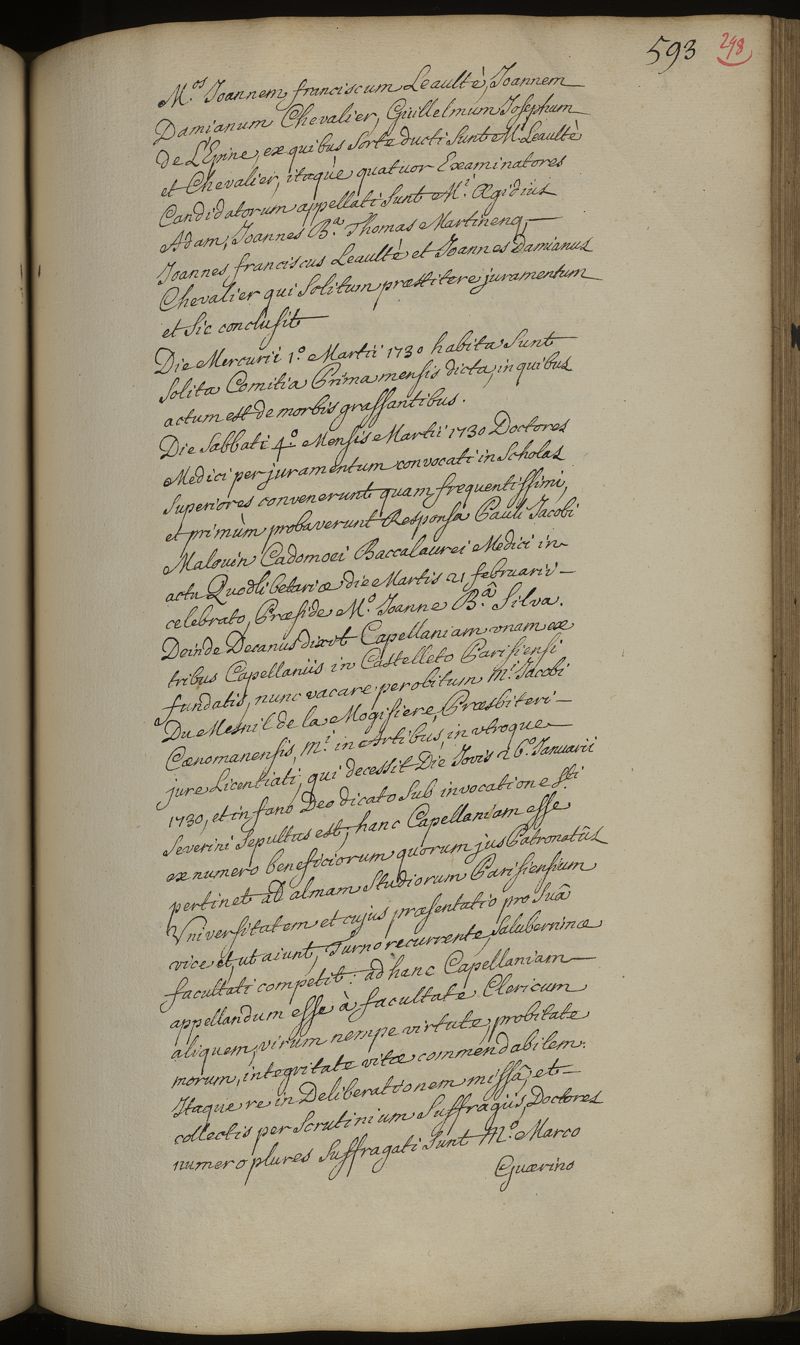 593 298
M.os Joannem franciscum Leaultè, Joannem
Damianum Chevalier, Guillelmum Josephum
de L'Epine, ex quibus Sorte ducti Sunt M.i Leaultè
et Chevalier, itaquè quatuor Examinatores
Candidatorum appellati Sunt M.i Ægidius
Adam, Joannes B.a Thomas Martinenq,
Joannes franciscus Leaultè et Joannes Damianus
Chevalier qui Solitum præstitere juramentum
et Sic conclusit
Die Mercurii 1.o Martii 1730 habita Sunt
Solita Comitia Prima mensis dicta, in quibus
actum est de morbis grassantibus.
Die Sabbati 4.o Mensis Martii 1730 Doctores
Medici per juramentum convocati in Scholas
Superiores convenerunt quam frequentissimi,
et primùm probaverunt Responsa Pauli Jacobi
Malouin Cadomoei Baccalaurei Medici in
actu Quodlibetariæ die Martis 21 februarii
celebrato, Præside M.o Joanne B.a Silva.
Deinde Decanus dixit Capellaniam vnam ex
tribus Capellaniis in Castelleto Parisiensi
fundatis, nunc vacare per obitum M.i Jacobi
Du Mesnil de la Mogisiere, Præsbiteri
Cænomanensis, M.i in Artibus, in vtroque
jure Licentiati, qui decessit Die Jovis 26.o Januarii
1730, et in fano Deo dicato Sub invocatione S.ti
Severini Sepultus est, hanc Capellaniam esse
ex numero beneficiorum quorum jus Patronatûs
pertinet ad almam Studiorum Parisiensium
Vniversitatem et cujus præsentatio pro Suâ
vice et, ut aiunt, Turno recurrente, Saluberrimæ
facultati competit: ad hanc Capellaniam
appellandum esse à facultate Clericum
aliquem, virum nempe virtute, probitate
morum, integritate vitæ commendabilem.
Itaque re in Deliberationem missâ, et
collectis per Scrutinium Suffragiis, Doctores
numero plures Suffragati Sunt M.o Marco
Guærino